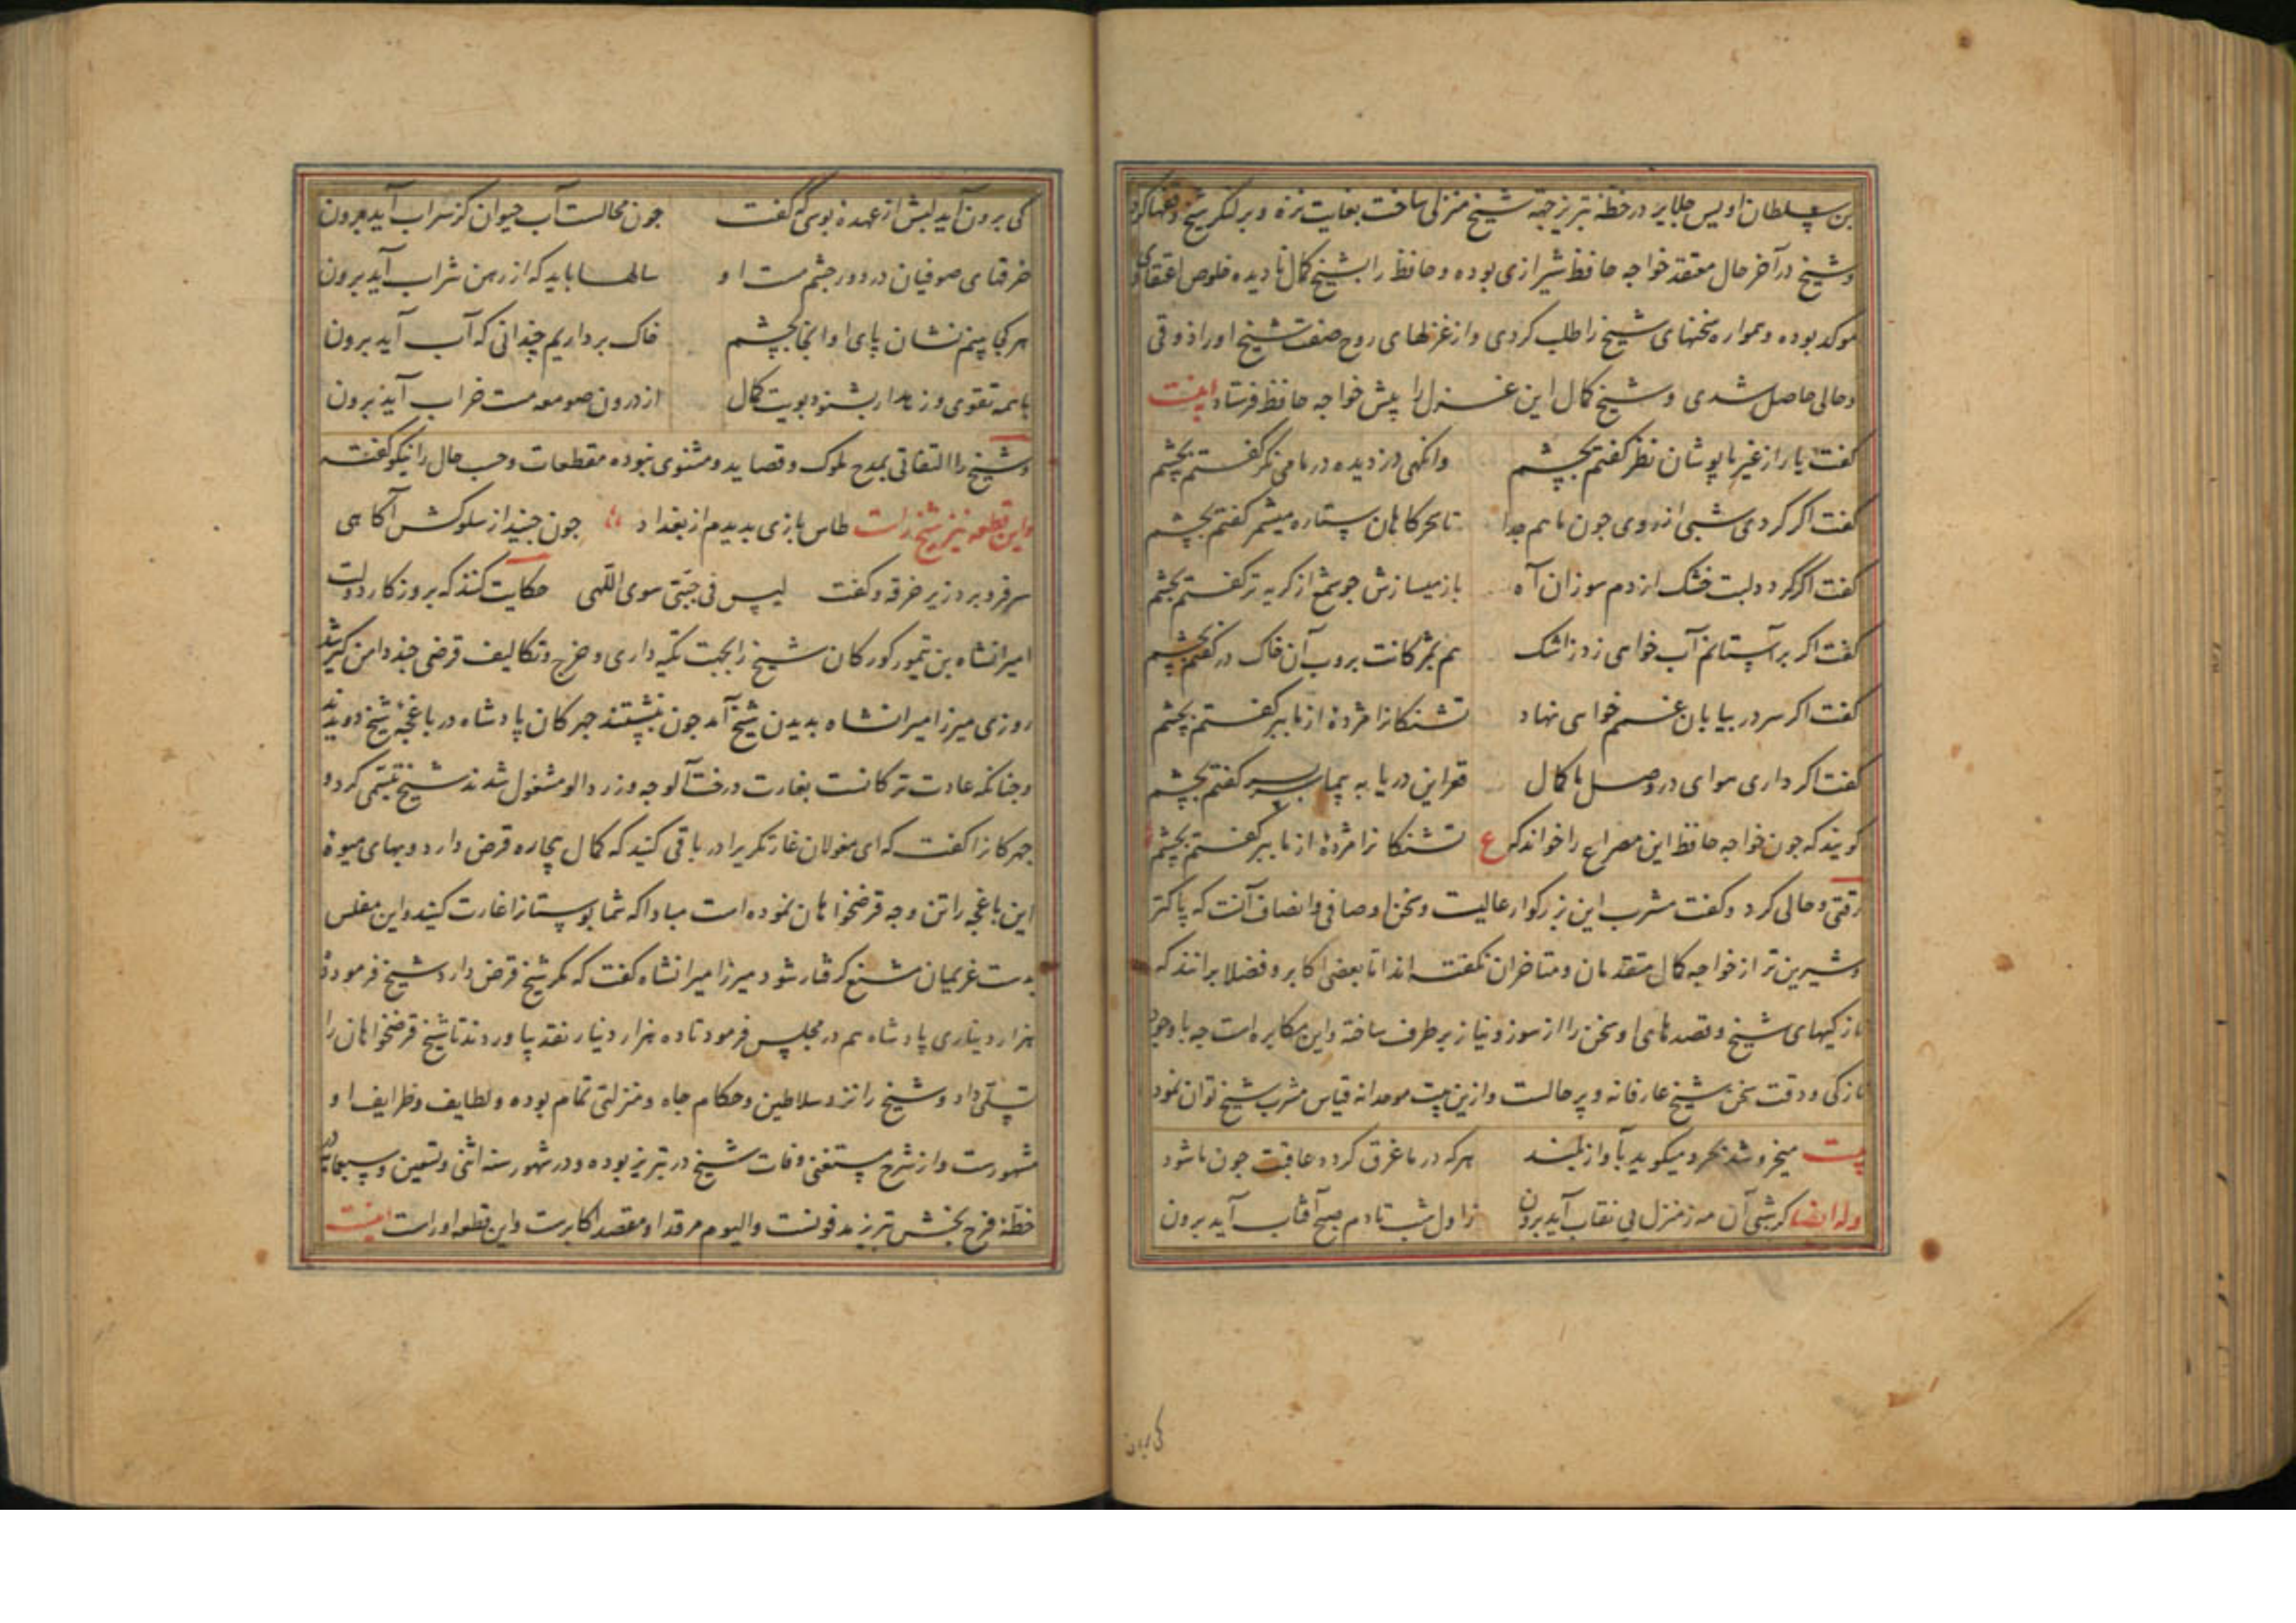 بن سلطان اویس جلایر در خطهٔ تبریز جهة شیخ منزلی ساخت بغایت نزه و بر لنکر شیخ وقفها کرد
و شیخ در آخر حال معتقد خواجه حافظ شیرازی بوده و حافظ را بشیخ کمال نادیده خلوص اعتقادی
موکد بوده و همواره سخنهای شیخ را طلب کردی و از غزلهای روح صفت شیخ او را ذوقی
و حالی حاصل شدی و شیخ کمال این غزل را پیش خواجه حافظ فرستاد اینست
کفت یار از غیر ما پوشان نظر کفتم بچشم وانکهی دزدیده در ما می نکر کفتم بچشم
کفت اکر کردی شبی از روی چون ماهم جدا تا سحرکاهان ستاره میشمر کفتم بچشم
کفت اکر کردد لبت خشک از دم سوزان آه باز میسازش چو شمع از کریه تر کفتم بچشم
کفت اکر بر آستانم آب خواهی زد ز اشک هم بمژکانت بروب آن خاک در کفتم بچشم
کفت اکر سر در بیابان غم خواهی نهاد تشنکانرا مژدهٔ از ما ببر کفتم بچشم
کفت اکر داری هوای در وصل ما کمال قعر این دریا به پیما سر بسر کفتم بچشم
کویند که چون خواجه حافظ این مصراع را خواند که ع تشنکانرا مژدهٔ از ما ببر کفتم بچشم
رقتی و حالی کرد و کفت مشرب این بزرکوار عالیست و سخن او صافی و انصاف آنست که پاکتر
و شیرین تر از خواجه کمال متقدمان و متاخران نکفته اند اما بعضی اکابر و فضلا برانند که
نازکیهای شیخ و قصدهای او سخن را از سوز و نیاز برطرف ساخته و این مکابره است چه با وجود
نازکی و دقت سخن شیخ عارفانه و پر حالست و ازین بیت موحدانه قیاس مشرب شیخ توان نمود
بیت میخروشد بحر و میکوید بآواز بلند هر که در ما غرق کردد عاقبت چون ما شود
وله ایضا کر شبی آن مه ز منزل بی نقاب آید برون ز اول شب تا دم صبح آفتاب آید برون
کی برون
کی برون آید لبش از عهدهٔ بوسی که کفت چون محالست آب حیوان کز سراب آید برون
خرقهای صوفیان در دور چشم مست او سالها باید که از رهن شراب آید برون
هر کجا بینم نشان پای او آنجا بچشم خاک برداریم چندانی که آب آید برون
با همه تقوی و زهد ار بشنود بویت کمال از درون صومعه مست خراب آید برون
و شیخ را التفاتی بمدح ملوک و قصاید و مثنوی نبوده مقطعات و حسب حال را نیکو کفته
و این قطعه نیز شیخ راست طاس بازی بدیدم از بغداد چون جنید از سلوکش آکاهی
سر فرو برد زیر خرقه و کفت لیس فی جبتی سوی اللهی حکایت کنند که بروزکار دولت
امیرانشاه بن تیمور کورکان شیخ را بجهت تکیه داری و خرج و تکالیف قرضی چند دامن کیر شد
روزی میرزا میرانشاه بدیدن شیخ آمد چون بنشستند چهرکان پادشاه در باغچهٔ شیخ دویدند
و چنانکه عادت ترکانست بغارت درخت آلوچه و زردالو مشغول شدند شیخ تبسمی کرد و
چهرکانرا کفت که ای مغولان غارتکری را در باقی کنید که کمال بیچاره قرض دارد و بهای میوهٔ
این باغچه را تن وجه قرضخواهان نموده است مبادا که شما بوستانرا غارت کنید و این مفلس
بدست غریمان مشنع کرفتار شود میرزا میرانشاه کفت که مکر شیخ قرض دارد شیخ فرمود ده
هزار دیناری پادشاه هم در مجلس فرمود تا ده هزار دینار نقد بیاوردند تا شیخ قرضخواهان را
تسلی داد و شیخ را نزد سلاطین و حکام جاه و منزلتی تمام بوده و لطایف و ظرایف او
مشهورست و از شرح مستغنی وفات شیخ در تبریز بوده و در شهور سنه اثنی و تسعین و سبعمائه در
خطهٔ فرح بخش تبریز مدفونست و الیوم مرقد او مقصد اکابرست و این قطعه او راست اینست